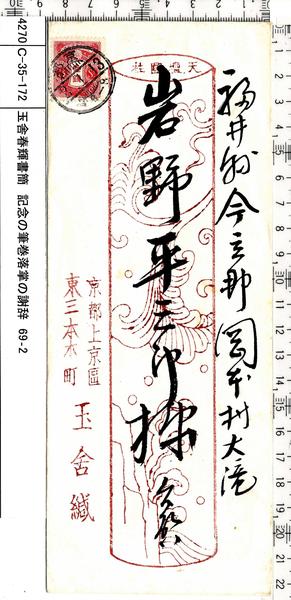 福井縣今立郡岡本村大滝
岩野平三郎様
天鳳画社
京都上京區
東三本木町
玉舎緘
4270 C-35-172 玉舎春輝書簡 記念の筆巻落掌の謝辞 69-2